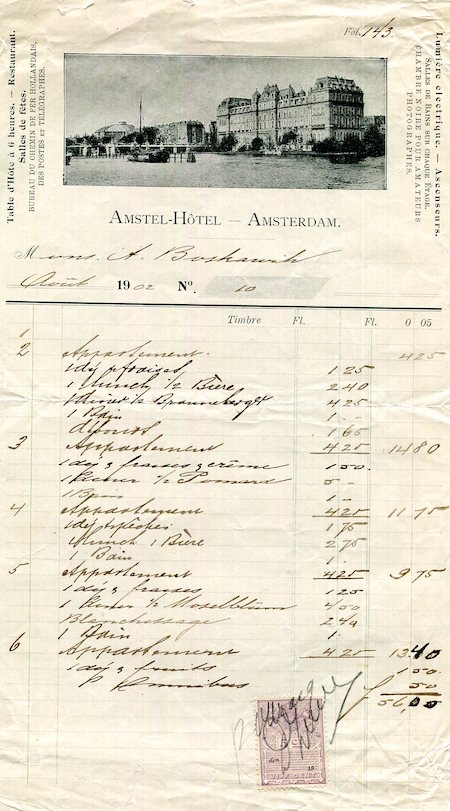 Fol. 143
Table d'Hôte à 6 heures. — Restaurant.
Salles de fêtes.
BUREAU DU CHEMIN DE FER HOLLANDAIS,
DES POSTES ET TÉLÉGRAPHES.
Lumière électrique. — Ascenseurs.
SALLES DE BAINS SUR CHAQUE ÉTAGE.
CHAMBRE NOIRE POUR AMATEURS
PHOTOGRAPHES.
AMSTEL-HÔTEL — AMSTERDAM.
Mons. A. Boskowik
Août 1902 No. 10
Timbre Fl. Fl. 0 05
1
2 Appartement 4 25
1 dej 1 25
1 Lunch 1/2 Bière 2 40
1 Diner 1/2 Brauneberger 4 25
1 Bain 1 -
1 65
3 Appartement 4 25 14 80
1 dej & fraises & crème 1 50
1 Diner 1/2 Pomard 5 -
1 Bain 1 -
4 Appartement 4 25 11 75
1 dej & pêches 1 75
1 Lunch 1 Bière 2 75
1 Bain 1 -
5 Appartement 4 25 9 75
1 dej & fraises 1 25
1 Diner 1/2 4/50
Blanchissage 2 40
1 Bain 1 -
6 Appartement 4 25 13 40
1 dej & fruits 1 50
Omnibus 50
f 56,05